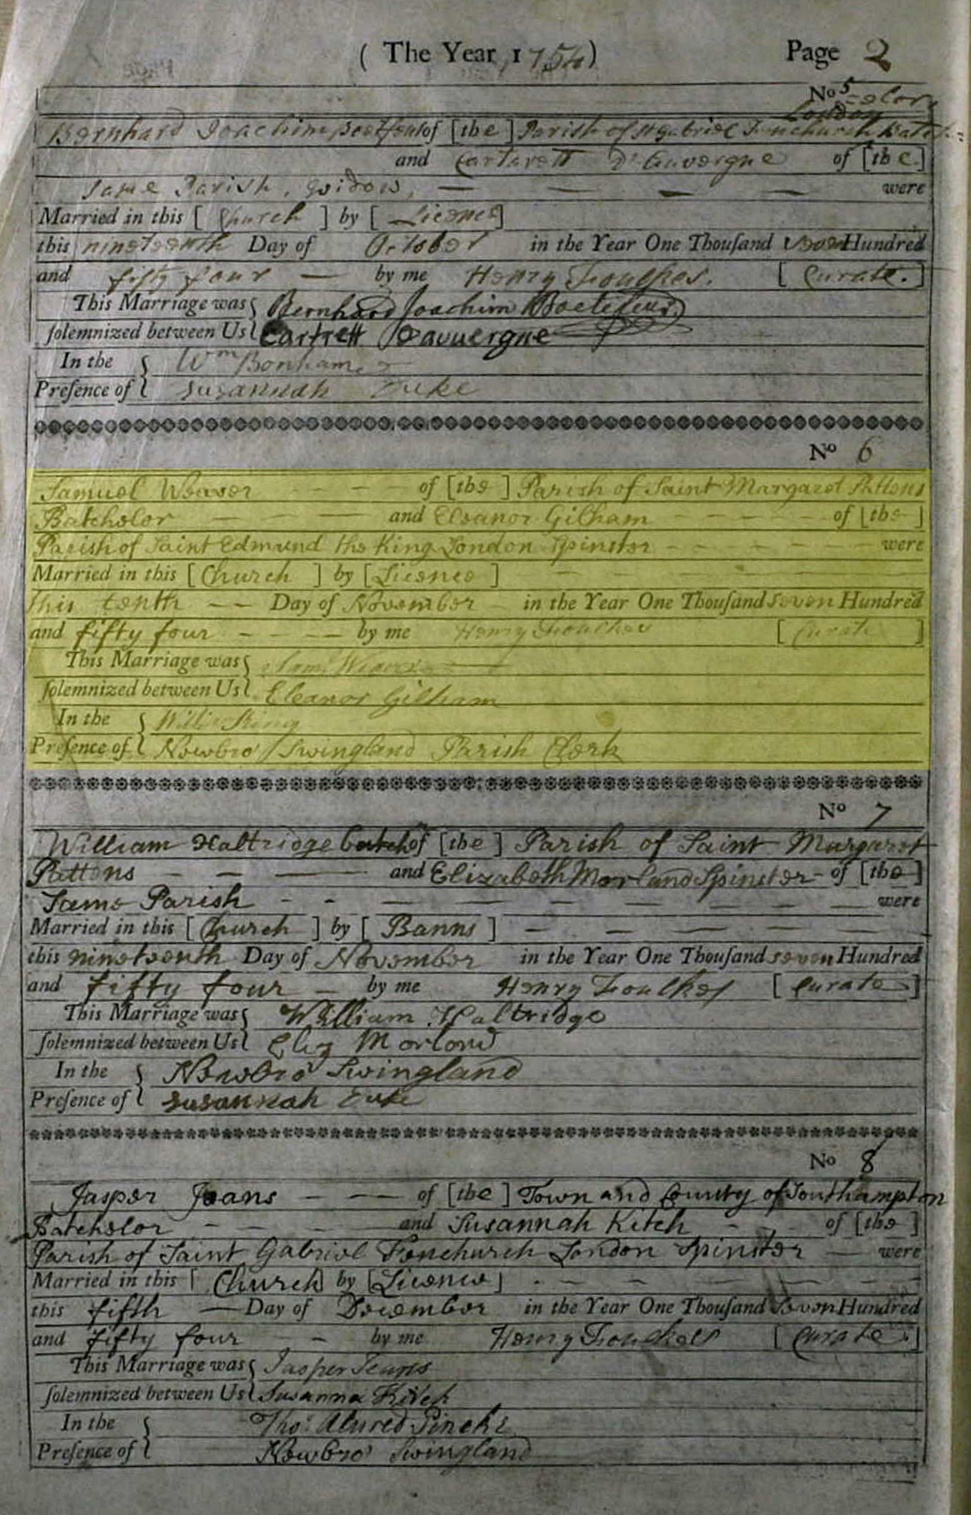 ( The Year 1754)
Page 2
No 5
London
Bernhard Joachim of [the] Parish of St Gabriel Fenchurch
and Carterett D'Auvergne of [the]
Same Parish, Widow, were
Married in this [ Church ] by [ Licence ]
this nineteenth Day of October in the Year One Thousand Seven Hundred
and fifty four by me Henry Foulkes. [ Curate. ]
This Marriage was { Bernhard Joachim Boetefeur
Solemnized between Us { Cartrett Dauvergne
In the { Wm Bonham
Presence of { Susannah Duke
No 6
Samuel Weaver of [the] Parish of Saint Margaret Pattens
Batchelor and Eleanor Gilham of [the]
Parish of Saint Edmund the King London Spinster were
Married in this [ Church ] by [ Licence ]
this tenth Day of November in the Year One Thousand seven Hundred
and fifty four by me Henry Foulkes [ Curate ]
This Marriage was { Saml Weaver
Solemnized between Us { Eleanor Gilham
In the {
Presence of { Newbro' Swingland Parish Clerk
No 7
William Haltridge batch of [the] Parish of Saint Margaret
Pattens and Elizabeth Morland Spinster of [the]
Same Parish were
Married in this [ Church ] by [ Banns ]
this nineteenth Day of November in the Year One Thousand seven Hundred
and fifty four by me Henry Foulkes [ Curate ]
This Marriage was { William Haltridge
Solemnized between Us { Eliz Morland
In the { Newbro' Swingland
Presence of { Susannah Duke
No 8
Jasper Jeans of [the] Town and County of Southampton
Batchelor and Susannah Kitch of [the]
Parish of Saint Gabriel Fenchurch London Spinster were
Married in this [ Church ] by [ Licence ]
this fifth Day of December in the Year One Thousand Seven Hundred
and fifty four by me Henry Foulkes [ Curate ]
This Marriage was { Jasper Jeans
Solemnized between Us { Susanna
In the { Thos Alured Pincke
Presence of { Newbro' Swingland